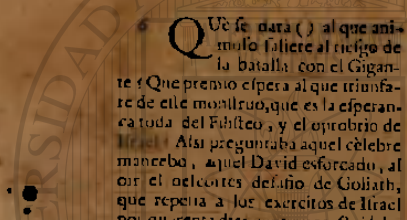 6 QUè se dara ( ) al que ani-
moso saliere al riesgo de
la batalla con el Gigan-
te? Que premio espera al que triunfa-
re de este monstruo, que es la esperan-
ca toda del Filisteo, y el oprobrio de
Israel? Assi preguntaba aquel cèlebre
mancebo, aquel David esforcado, al
oir el descortes desafio de Goliath,
que repetia a los exercitos de Israel
por quarenta dias